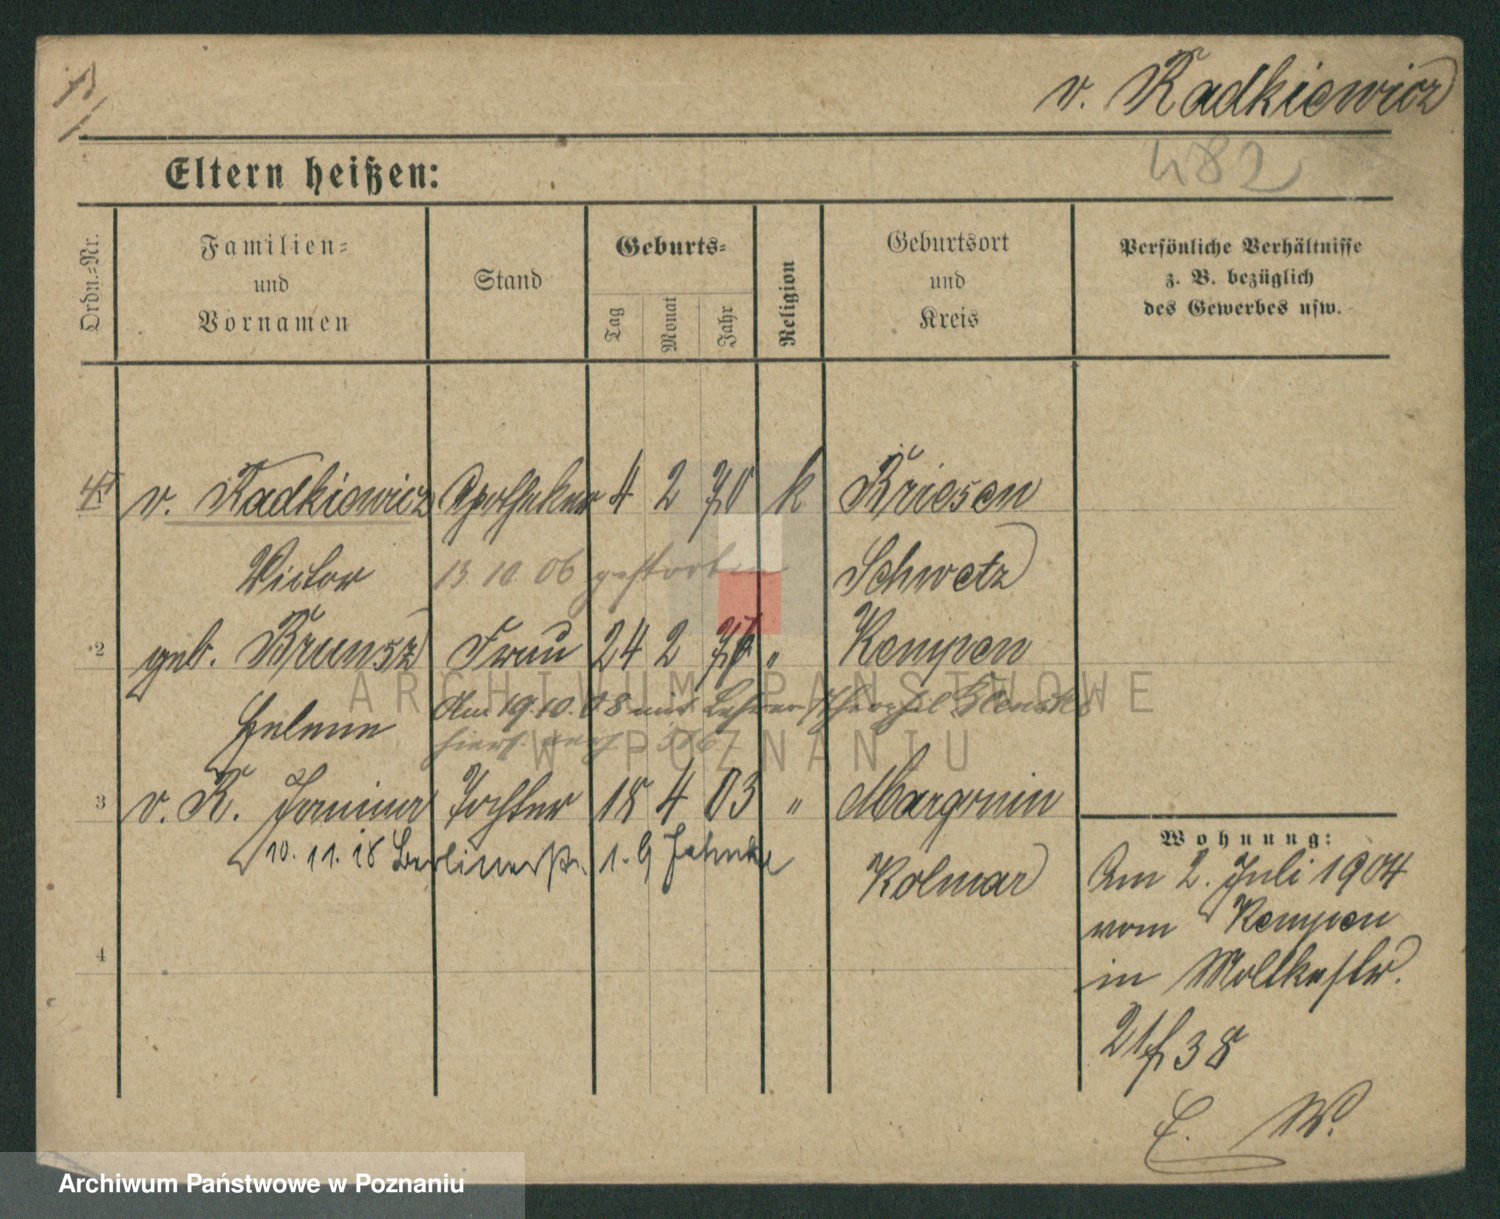 v. Radkiewicz
482
Eltern heißen:
Ordn.-Nr.
Familien-
und
Vornamen
Stand
Geburts-
Tag
Monat
Jahr
Religion
Geburtsort
und
Kreis
Persönliche Verhältnisse
z. B. bezüglich
des Gewerbes usw.
v. Radkiewicz Apotheker 4 2 70 k Briesen
Victor 13.10.06 gestorben Schwetz
2 geb. Brunsz Frau 24 2 " Kempen
Helene Am 19.10.08 mit Lehrer
ARCHIWUM PAŃSTWOWE
W POZNANIU
3 v. R. Janina Tochter 18 4 03 " Margonin
10.11.18 Berlinerstr. Kolmar
4
Wohnung:
Am 2. Juli 1904
vom Kempen
in Moltkestr.
21 38
E. W.
Archiwum Państwowe w Poznaniu